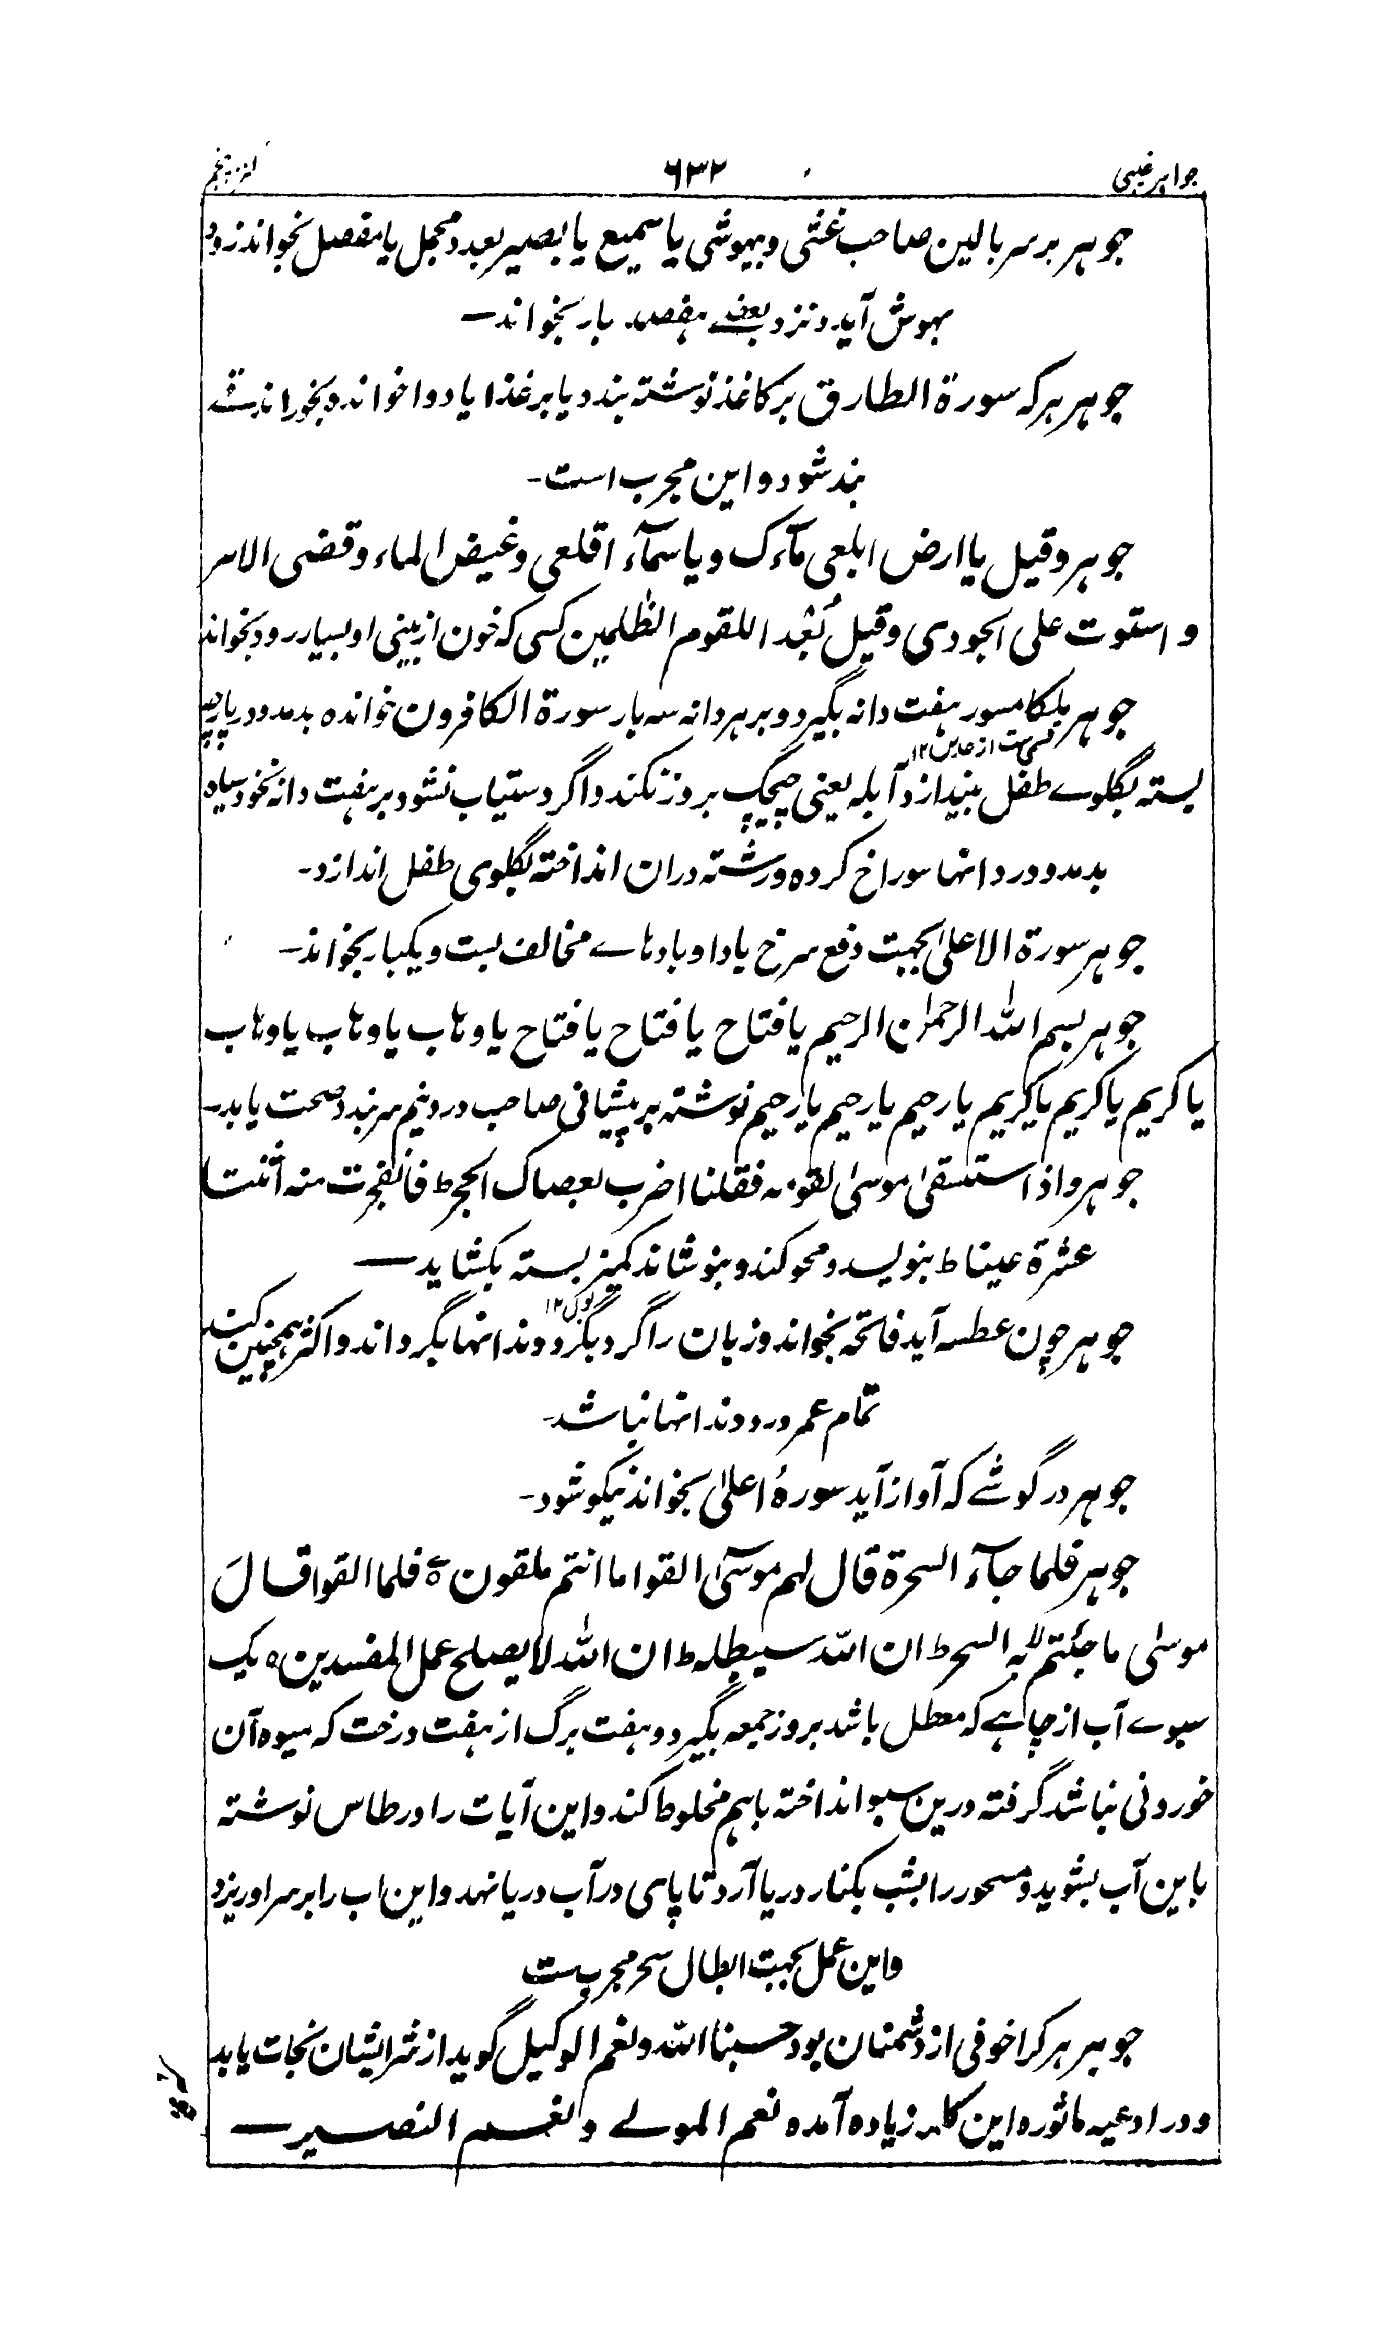 جواہر غیبی ۶۳۲ کنز پنجم
جوہر بر سر بالین صاحب غشی و بیہوشی یا سمیع یا بصیر بعدد مجمل یا مفصل بخواند زود
بہوش آید و نزد بعضے ہفصد بار بخواند ـ
جوہر ہر کہ سورۃ الطارق بر کاغذ نوشتہ بندد یا بر غذا یا دوا خواند و بخوراند قے
بند شود و این مجرب است ـ
جوہر وقیل یا ارض ابلعی مآءک ویا سمآء اقلعی وغیض الماء وقضی الامر
و استوت علی الجودی وقیل بُعْدا للقوم الظّٰلمین کسی کہ خون از بینی او بسیار رود بخواند
جوہر ہلکا مسور ہفت دانہ بگیرد و بر ہر دانہ سہ بار سورۃ الکافرون خواندہ بدمد و در پارچہ
قسمیست از عدس ۱۲
بستہ بگلوے طفل بیندازد آبلہ یعنی چیچک بروز نکند و اگر دستیاب نشود بر ہفت دانہ نخود سیاہ
بدمد و در دانہا سوراخ کردہ و رشتہ دران انداختہ بگلوی طفل اندازد ـ
جوہر سورۃ الاعلیٰ بجہت دفع سرخ یادا و بادہاے مخالف بست و یکبار بخواند ـ
جوہر بسم اللہ الرحمٰن الرحیم یا فتاح یا فتاح یا فتاح یا وہاب یا وہاب یا وہاب
یا کریم یا کریم یا کریم یا رحیم یا رحیم یا رحیم نوشتہ بر پیشانی صاحب درد نیم سر بندد صحت یابد ـ
جوہر و اذ استسقیٰ موسیٰ لقومہ فقلنا اضرب بعصاک الحجر ط فانفجرت منہ اثنتا
عشرۃ عینا ط بنویسد و محو کند و بنوشاند کمیز بستہ بکشاید ـ
بول ۱۲
جوہر چون عطسہ آید فاتحہ بخواند و زبان را گرد بگرد دندانہا بگرداند و اکثر ہمچنین کند
تمام عمر درد دندانہا نباشد ـ
جوہر در گوشے کہ آواز آید سورۂ اعلیٰ بخواند نیکو شود ـ
جوہر فلما جآء السحرۃ قال لہم موسیٰٓ القوا ما انتم ملقون ہ فلما القوا قالَ
موسٰی ما جئتم بہ السحر ط ان اللہ سیبطلہ ط ان اللہ لا یصلح عمل المفسدین ہ یک
سبوے آب از چاہے کہ معطل باشد بروز جمعہ بگیرد و ہفت برگ از ہفت درخت کہ میوہ آن
خوردنی نباشد گرفتہ درین سبو انداختہ باہم مخلوط کند و این آیات را در طاس نوشتہ
باین آب بشوید و مسحور را بشب بکنار دریا آرد تا پای در آب دریا نہد و این اب را بر سر او ریزد
و این عمل بجہت ابطال سحر مجربست
جوہر ہر کرا خوفی از دشمنان بود حسبنا اللہ ونعم الوکیل گوید از شر ایشان نجات یابد
و در ادعیہ ماثورہ این کلمہ زیادہ آمدہ نعم المولے و نعم النصیر ـ